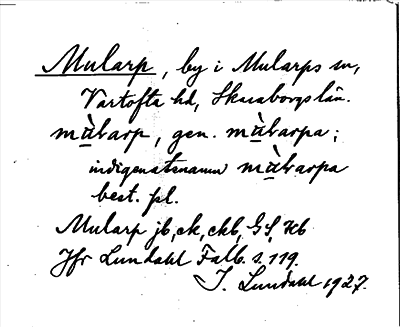 Mularp, by i Mularps sn,
Vartofta hd, Skaraborgs län.
màlarp, gen. màlarpa;
indigenatsnamn màlarpa
best. pl.
Mularp jb, ek, ekb, GS, Hb
Jfr Lundahl Falb. s. 119.
I. Lundahl 1927.